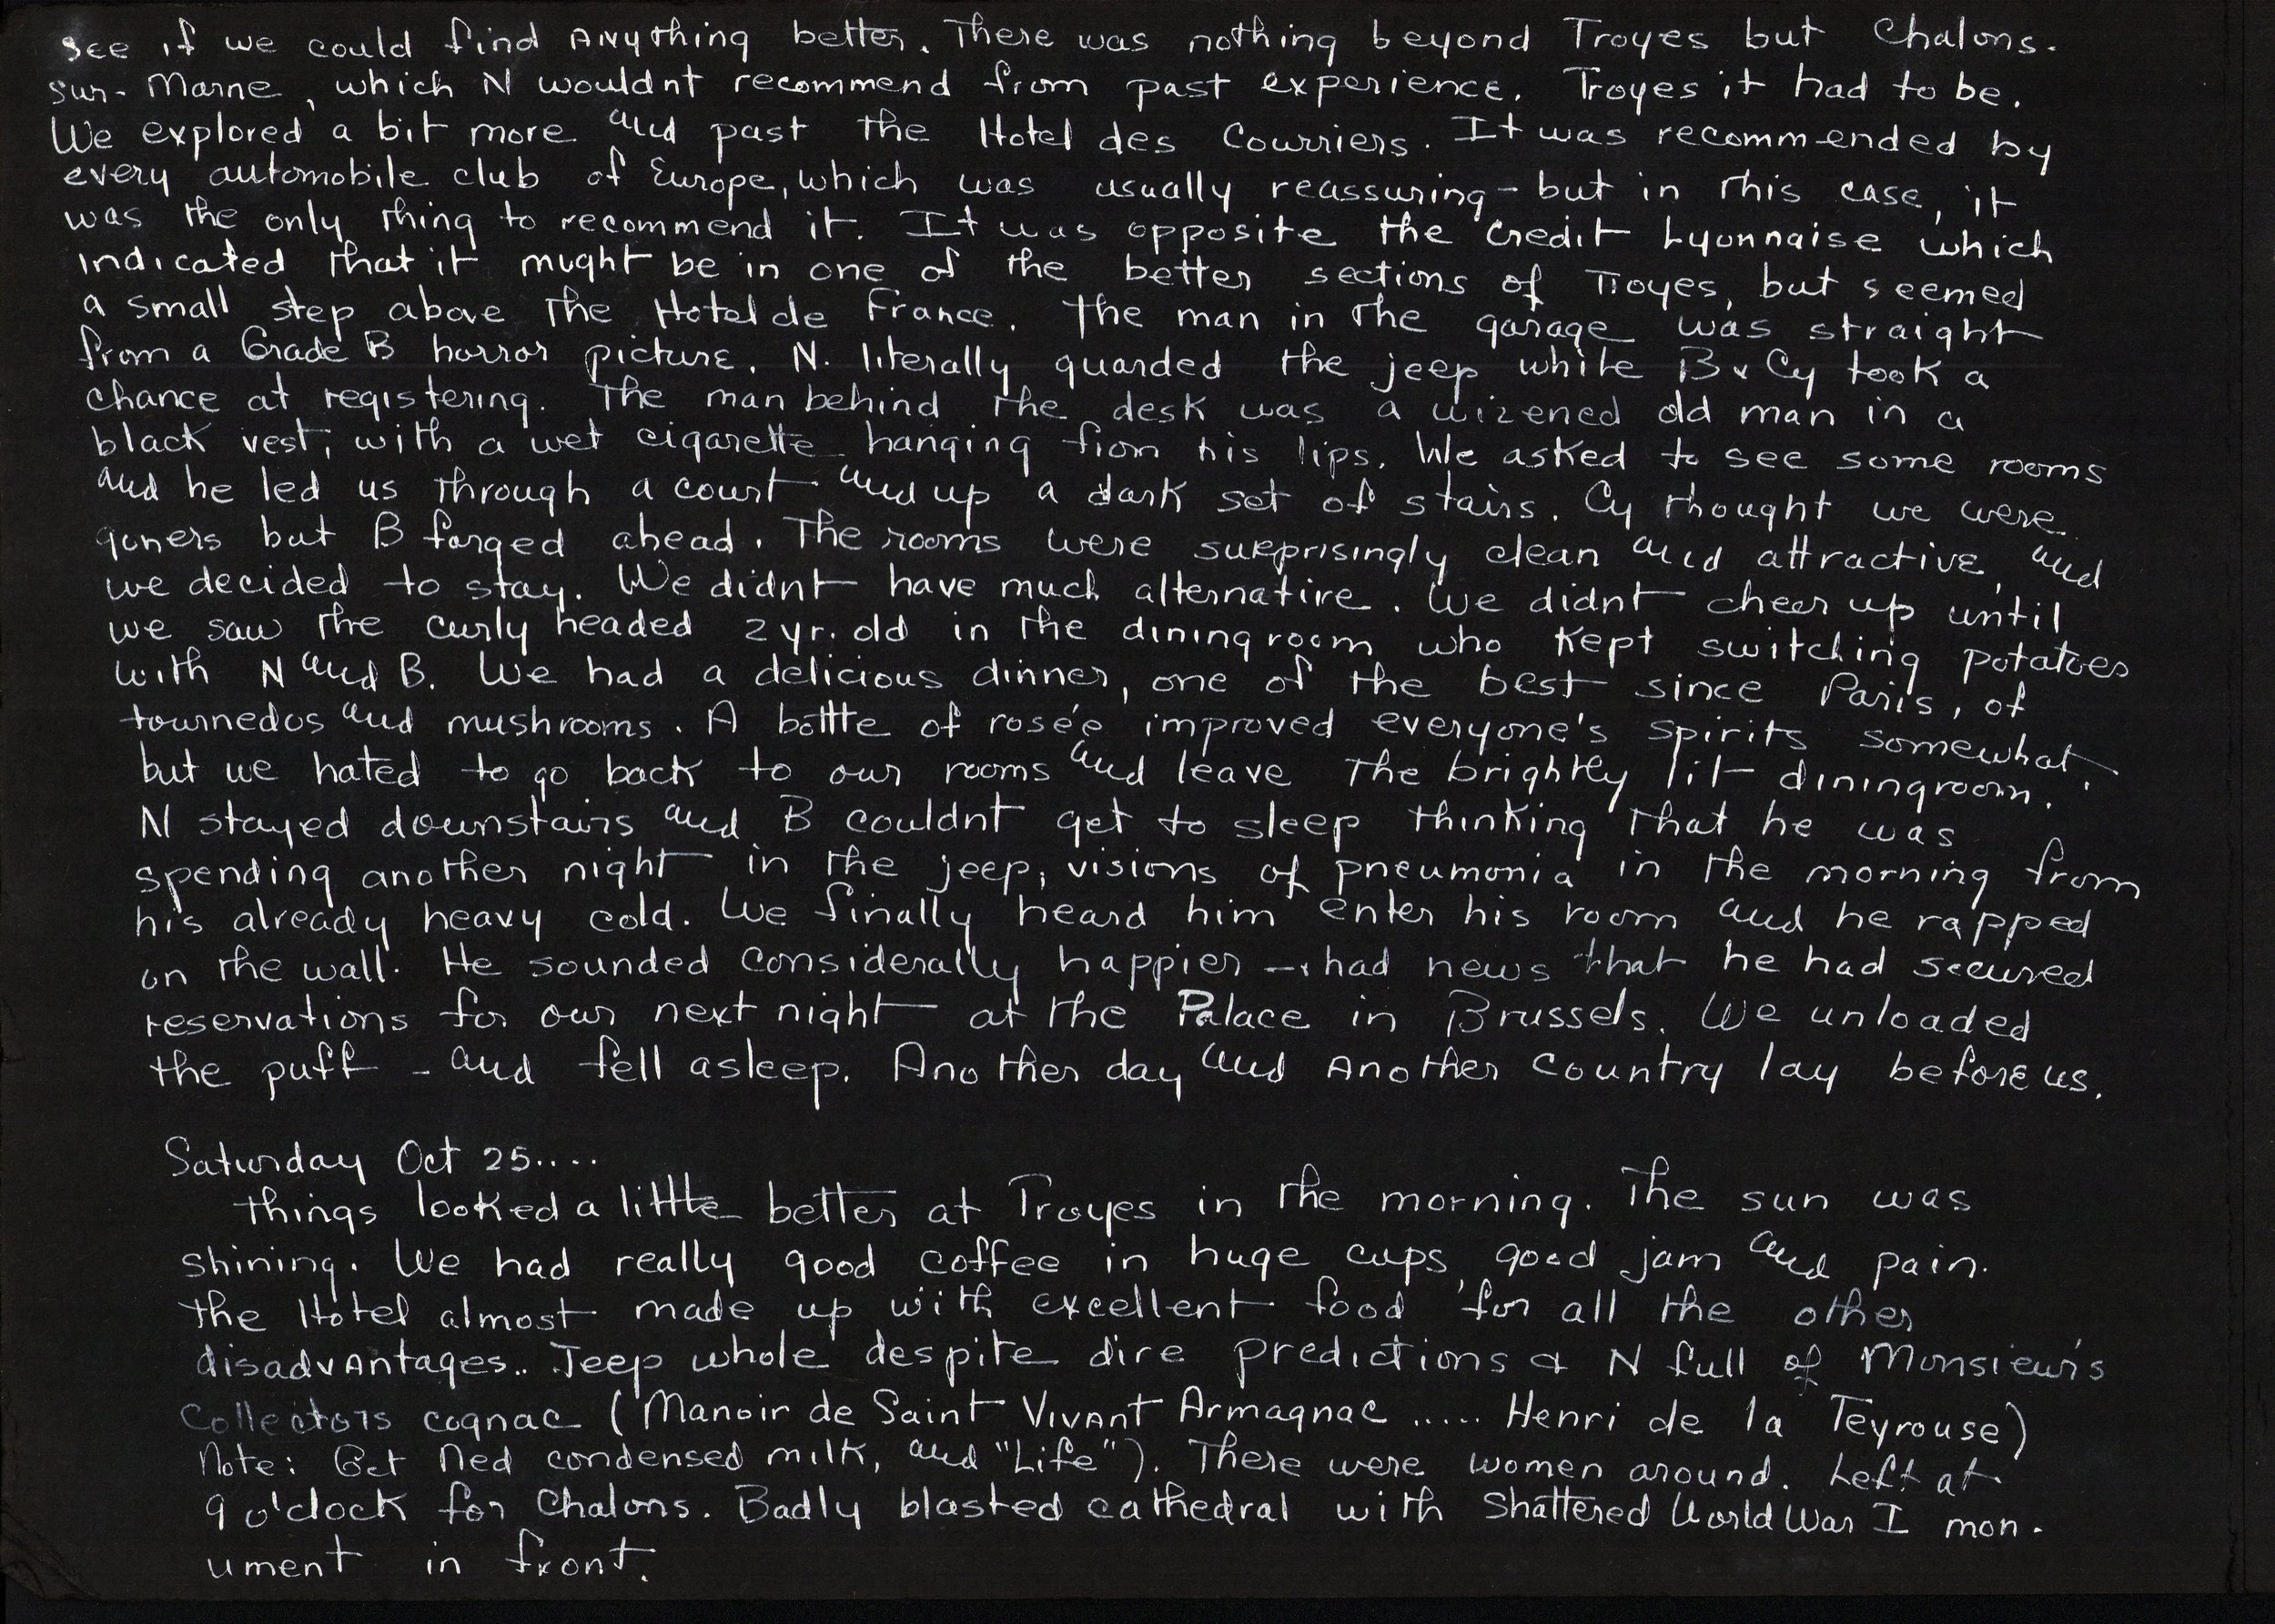 see if we could find Anything better. There was nothing beyond Troyes but Chalons-
sur-Marne, which N wouldnt recommend from past experience. Troyes it had to be.
We explored a bit more and past the Hotel des Courriers. It was recommended by
every automobile club of Europe, which was usually reassuring - but in this case, it
was the only thing to recommend it. It was opposite the Credit Lyonnaise which
indicated that it mught be in one of the better sections of Troyes, but seemed
a small step above the Hotel de France. The man in the garage was straight
from a Grade B horror picture. N. literally guarded the jeep while B & Cy took a
chance at registering. The man behind the desk was a wizened old man in a
black vest, with a wet cigarette hanging from his lips. We asked to see some rooms
and he led us through a court and up a dark set of stairs. Cy thought we were
goners but B forged ahead. The rooms were surprisingly clean and attractive, and
we decided to stay. We didnt have much alternative. We didnt cheer up until
we saw the curly headed 2 yr. old in the diningroom who kept switching potatoes
with N and B. We had a delicious dinner, one of the best since Paris, of
tournedos and mushrooms. A bottle of rosée improved everyone's spirits somewhat.
but we hated to go back to our rooms and leave the brightly lit diningroom.
N stayed downstairs and B couldnt get to sleep thinking that he was
spending another night in the jeep, visions of pneumonia in the morning from
his already heavy cold. We finally heard him enter his room and he rapped
on the wall. He sounded considerally happier - & had news that he had secured
reservations for our next night at the Palace in Brussels. We unloaded
the puff - and fell asleep. Another day and Another Country lay before us.
Saturday Oct 25....
things looked a little better at Troyes in the morning. The sun was
shining. We had really good coffee in huge cups, good jam and pain.
the Hotel almost made up with excellent food for all the other
disadvantages.. Jeep whole despite dire predictions & N full of Monsieur's
Collectors cognac (Manoir de Saint Vivant Armagnac ..... Henri de la Teyrouse)
Note: Get Ned condensed milk, and "Life"). There were women around. Left at
9 o'clock for Chalons. Badly blasted cathedral with Shattered World War I mon-
ument in front.